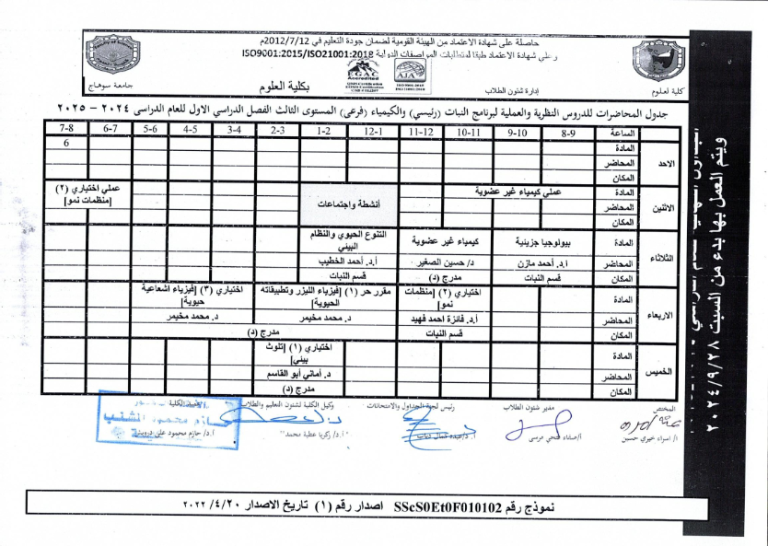 حاصلة على شهادة الاعتماد من الهيئة القومية لضمان جودة التعليم في 2012/7/12م
وعلى شهادة الاعتماد طبقا لمتطلبات المواصفات الدولية ISO9001:2015/ISO21001:2018
EGAC
Accredited
كلية العلوم
إدارة شئون الطلاب
بكلية العلوم
جامعة سوهاج
جدول المحاضرات للدروس النظرية والعملية لبرنامج النبات (رئيسي) والكيمياء (فرعى) المستوى الثالث الفصل الدراسي الاول للعام الدراسى ٢٠٢٤ - ٢٠٢٥
الساعة 8-9 9-10 10-11 11-12 12-1 1-2 2-3 3-4 4-5 5-6 6-7 7-8
الاحد
المادة 6
المحاضر
المكان
الاثنين
المادة عملي كيمياء غير عضوية أنشطة واجتماعات عملي اختياري (٢) [منظمات نمو]
المحاضر
المكان
الثلاثاء
المادة بيولوجيا جزيئية كيمياء غير عضوية التنوع الحيوي والنظام البيئي
المحاضر أ.د. أحمد مازن د/ حسين الصغير أ.د. أحمد الخطيب
المكان قسم النبات مدرج (د) قسم النبات
الاربعاء
المادة اختياري (٢) [منظمات نمو] مقرر حر (١) [فيزياء الليزر وتطبيقاته الحيوية] اختياري (٣) [فيزياء اشعاعية حيوية]
المحاضر أ.د. فائزة احمد فهيد د. محمد مخيمر د. محمد مخيمر
المكان قسم النبات مدرج (د)
الخميس
المادة اختياري (١) [تلوث بيئي]
المحاضر د. أماني أبو القاسم
المكان مدرج (د)
المختص
مدير شئون الطلاب
رئيس لجنة الجداول والامتحانات
وكيل الكلية لشئون التعليم والطلاب
أ/ اسراء خيري حسين
أ/صفاء فتحي مرسي
أ.د/ زكريا عطية محمد
أ.د/ حازم محمود على
ويتم العمل بها بدء من السبت ٢٠٢٤/٩/٢٨
نموذج رقم SScS0Et0F010102 اصدار رقم (١) تاريخ الاصدار ٢٠٢٢/٤/٢٠